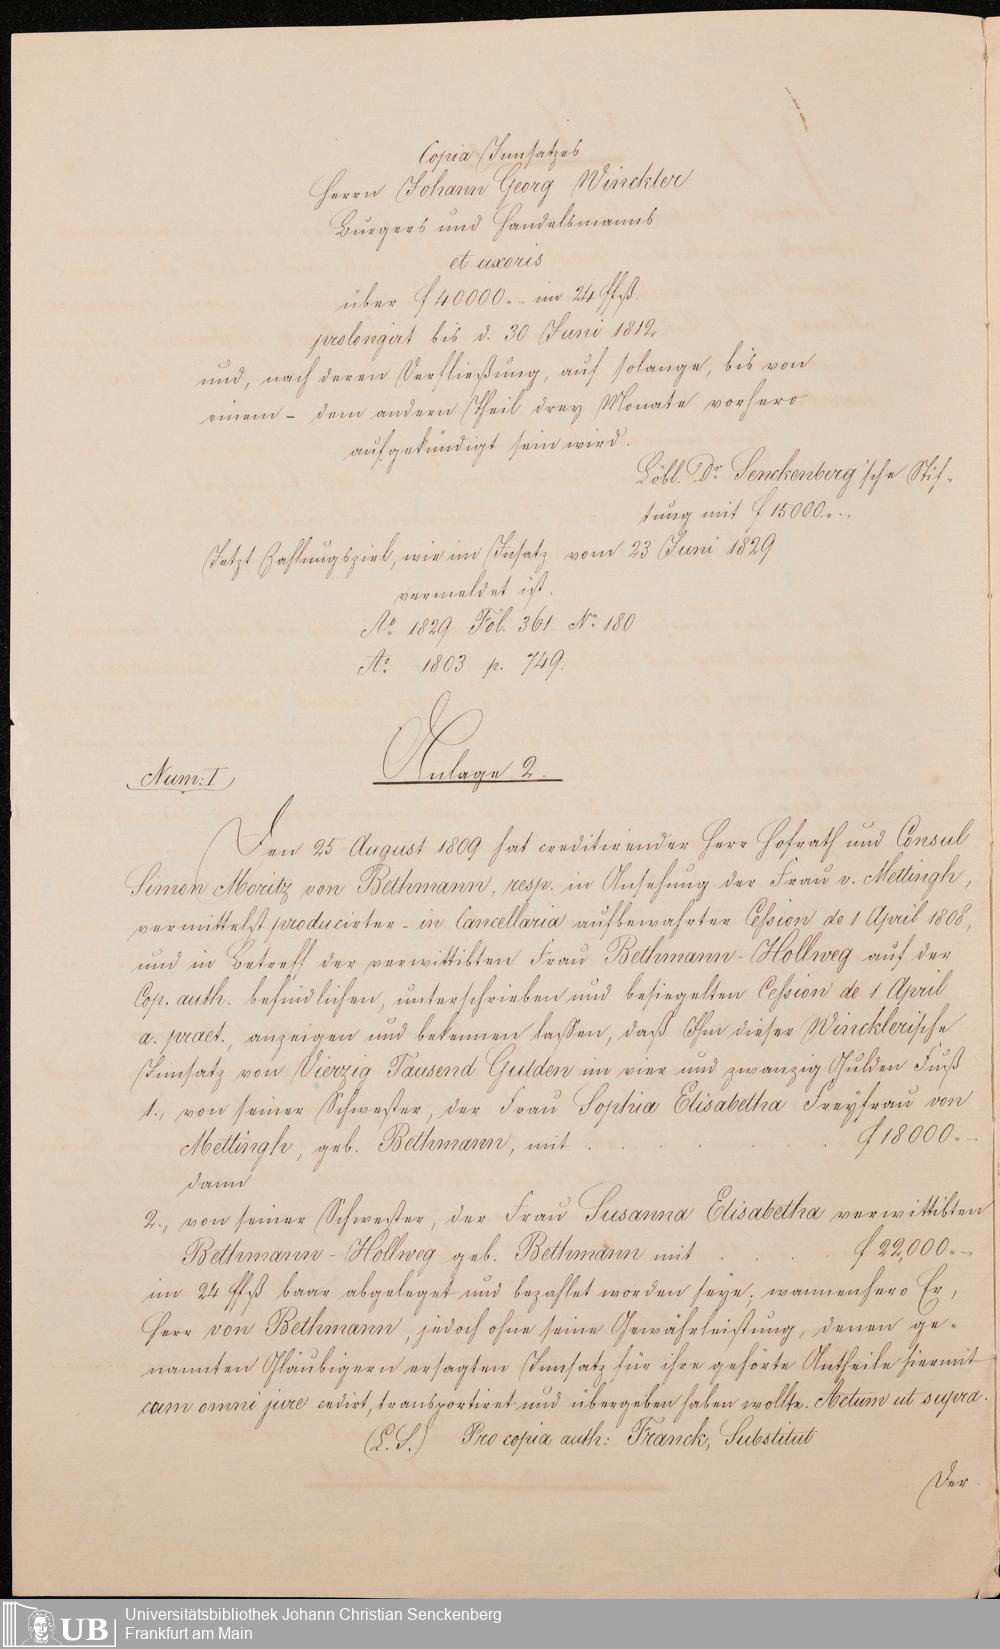 Copia Innsatzes
Herrn Johann Georg Winckler
Burgers und Handelsmanns
et uxoris
über f 40000.- im 24 fl fß.
prolongirt bis d. 30 Juni 1812
und, nach deren Verfließung, auf solange, bis von
einem - dem andern Theil drey Monate vorhero
aufgekündigt sein wird.
Löbl. Dr. Senckenberg'sche Stif-
tung mit f 15000.-
Jetzt Zahlungsziel, wie im Insatz vom 23 Juni 1829
vermeldet ist.
Ao. 1829 Fol. 361 No. 180
Ao. 1803 p. 749.
Anlage 2.
Num: I
Den 25 August 1809 hat creditirender Herr Hofrath und Consul
Simon Moritz von Bethmann, resp. in Ansehung der Frau v. Mettingh,
vermittelst producirter - in Cancellaria aufbewahrter Cession de 1 April 1808,
und in Betreff der verwittibten Frau Bethmann-Hollweg auf der
Cop. auth. befindlichen, unterschrieben und besiegelten Cession de 1 April
a. praet., anzeigen und bekennen lassen, daß Ihm dieser Wincklerische
Innsatz von Vierzig Tausend Gulden im vier und zwanzig Gulden Fuß
1., von seiner Schwester, der Frau Sophia Elisabetha Freyfrau von
Mettingh, geb. Bethmann, mit . . . . f 18000.-
dann
2., von seiner Schwester, der Frau Susanna Elisabetha verwittibten
Bethmann-Hollweg geb. Bethmann mit . . . f 22,000.-
im 24 fl fß baar abgeleget und bezahlet worden seye; wannenhero Er,
Herr von Bethmann, jedoch ohne seine Gewährleistung, denen ge-
nannten Gläubigern ersagten Innsatz für ihre gehörte Antheile hiermit
cum omni jure cedirt, transportiret und übergeben haben wollte. Actum ut supra.
(L. S.) Pro copia auth: Franck, Substitut
Der
UB
Universitätsbibliothek Johann Christian Senckenberg
Frankfurt am Main